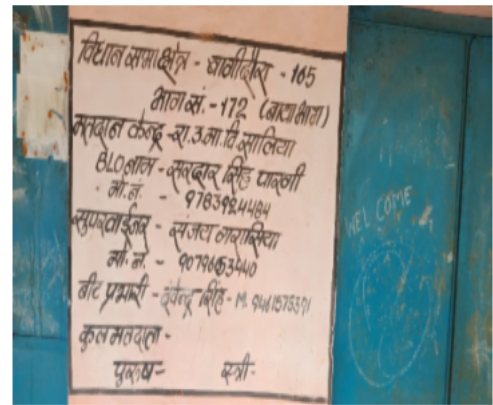 विधान सभा क्षेत्र - बागीदौरा - 165
भाग सं. - 172 (बायां भाग)
मतदान केन्द्र - रा.उ.मा.वि. सालिया
BLO नाम - सरदार सिंह पारगी
मो.नं. - 9783924484
सुपरवाईजर - संजय गरासिया
मो.नं. - 9079653440
बीट प्रभारी - देवेन्द्र सिंह - M. 9461575391
कुल मतदाता -
पुरुष - स्त्री -
WEL COME